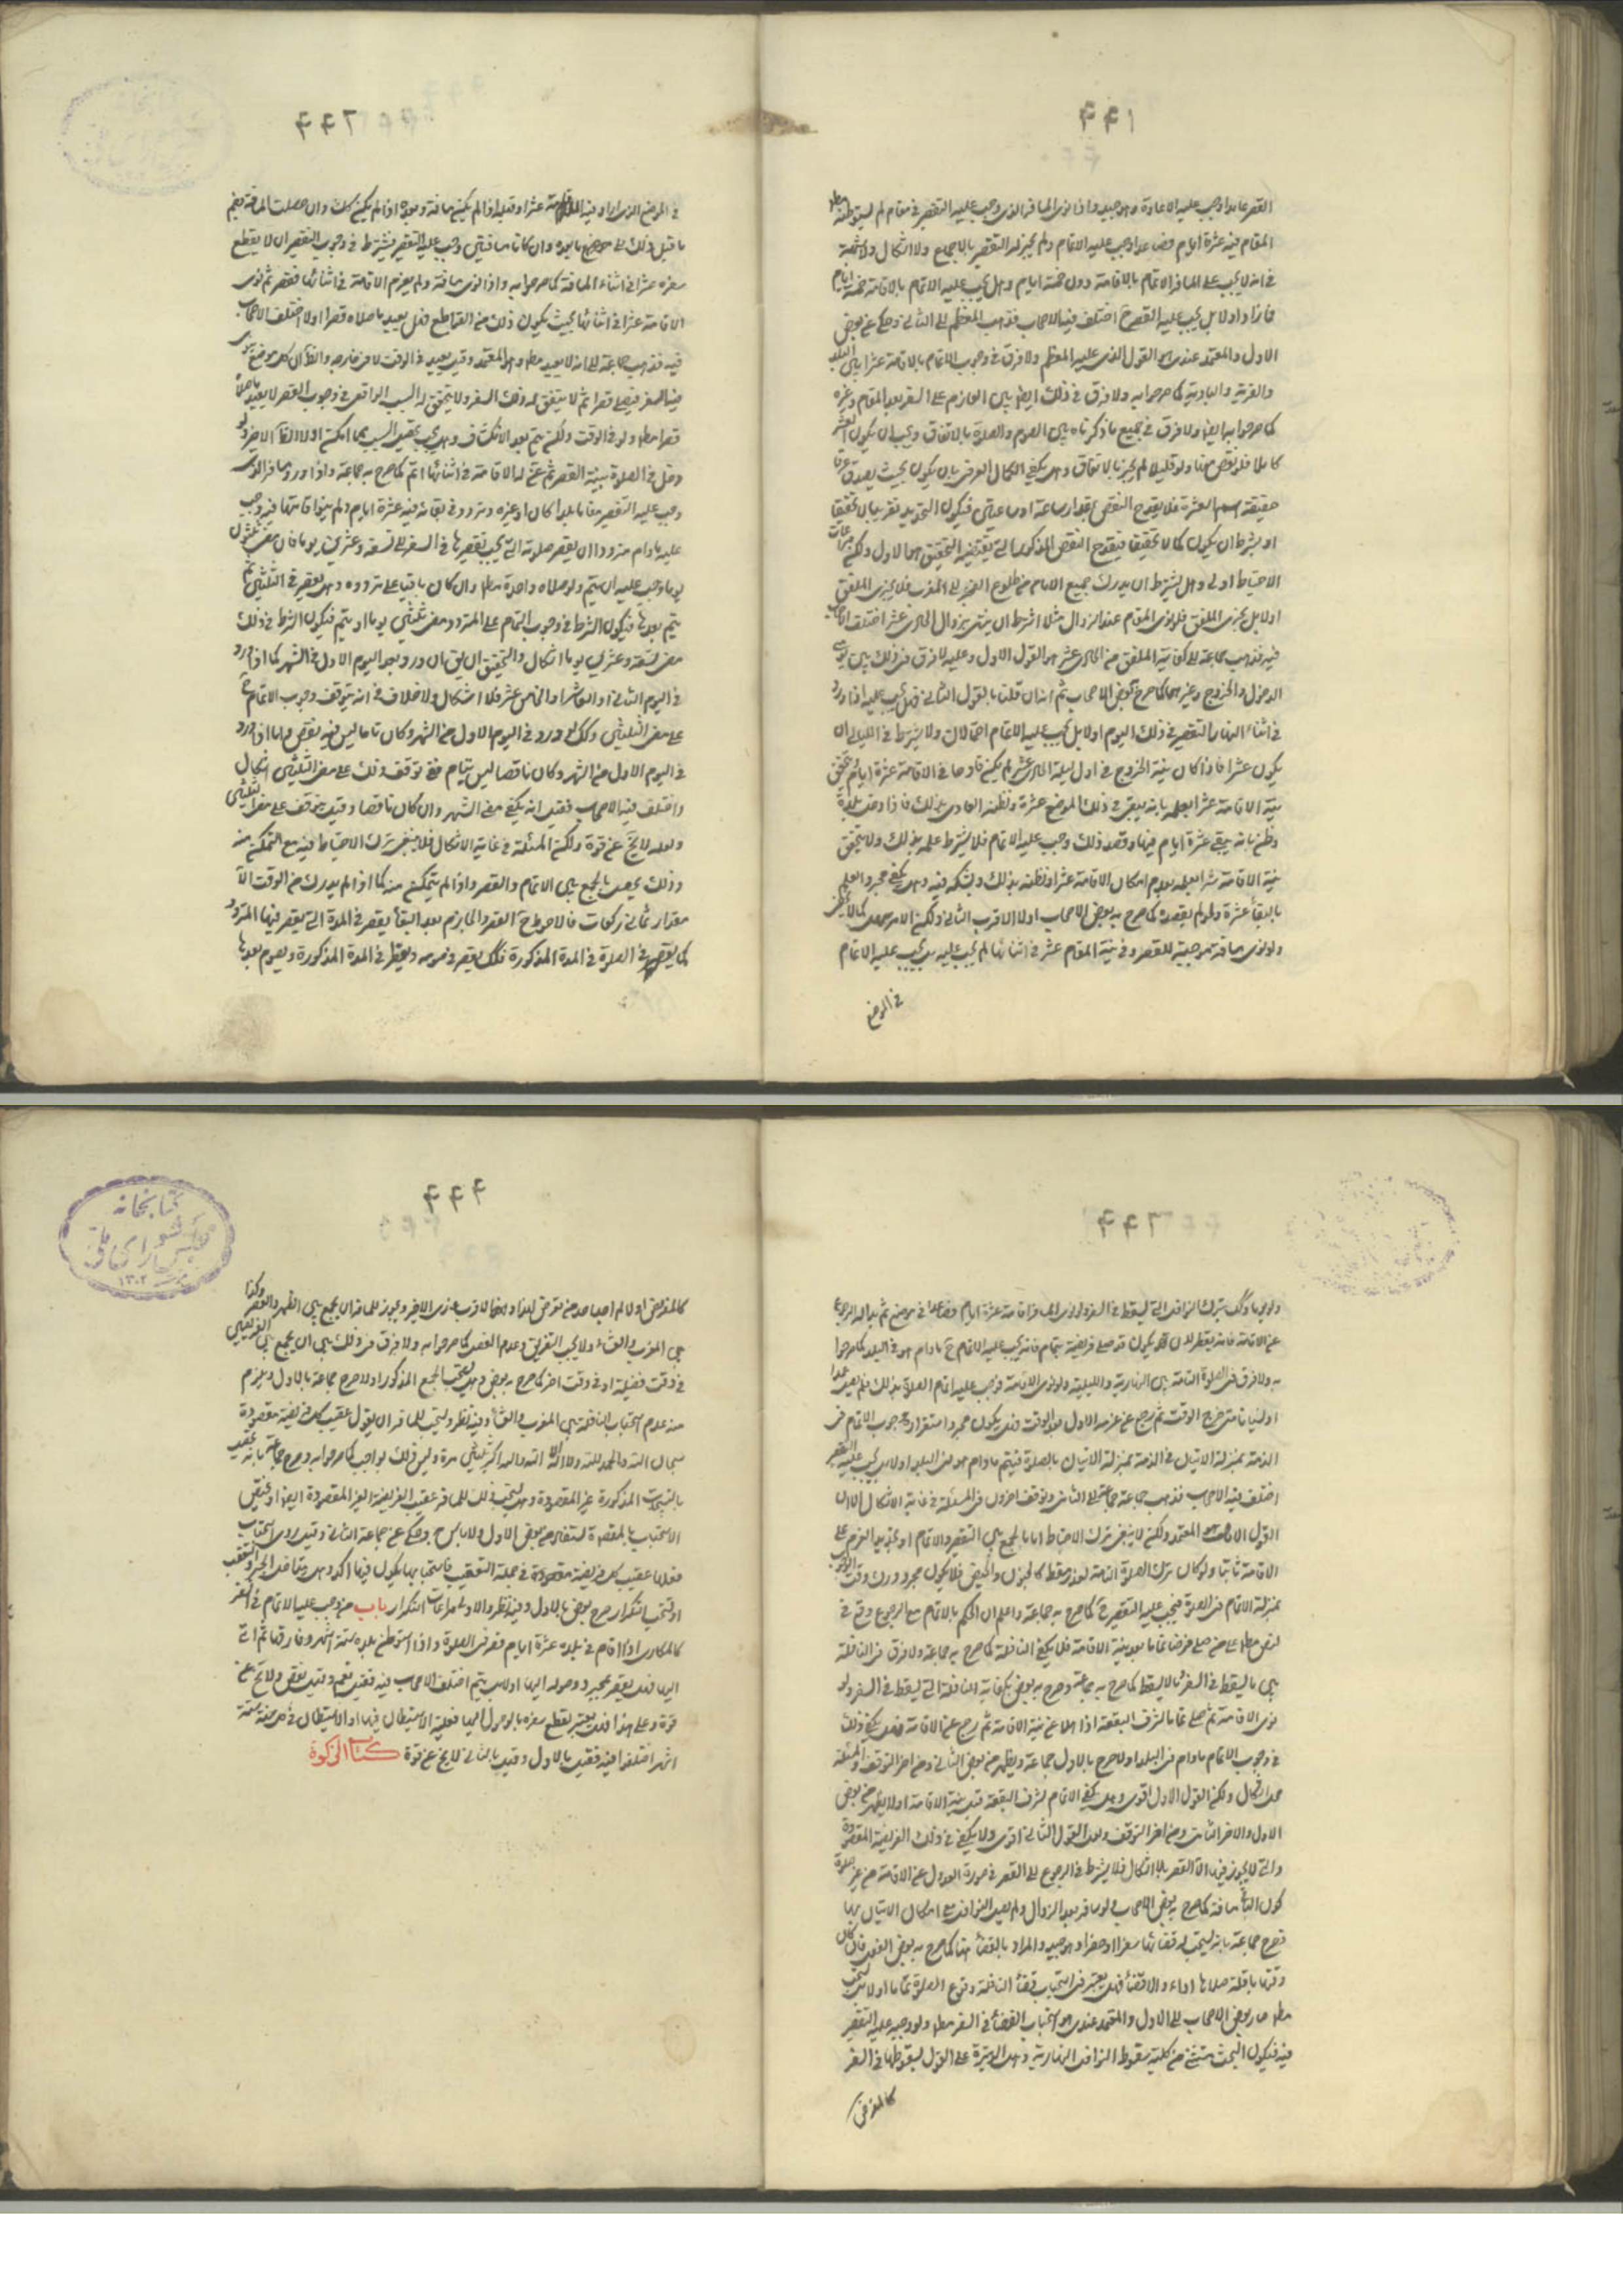 ٤٤١
القصر عامدا وجب عليه الاعادة وهو جيد واذا نوى المسافر الذى وجب عليه التقصير فى مقام لم يستوطنه
المقام فيه عشرة ايام فصاعدا وجب عليه الاتمام ولم يجز له التقصير بالاجماع ولا اشكال ولا شبهة
فى انه لا يجب على المسافر الاتمام بالاقامة دون خمسة ايام وهل يجب عليه الاتمام بالاقامة خمسة ايام
فازاد اولا بل يجب عليه القصر ح اختلف فيه الاصحاب فذهب المعظم الى الثانى وحكى عن بعض
الاول والمعتمد عندى هو القول الذى عليه المعظم ولا فرق فى وجوب الاتمام بالاقامة عشرا بين البلد
والقرية والبادية كما صرحوا به ولا فرق فى ذلك ايضا بين العازم على السفر بعد المقام وغيره
كما صرحوا به ايضا ولا فرق فى جميع ما ذكرناه بين الصوم والصلوة بالاتفاق ويجب ان يكون العشر
كاملا فلو نقص منها ولو قليلا لم يجز بالاتفاق وهل يكفى الكمال العرفى بان يكون بحيث يصدق عرفا
حقيقة اسم العشرة فلا يقدح النقص بمقدار ساعة او ساعتين فيكون التحديد تقريبا لا تحقيقا
او يشترط ان يكون كمالا تحقيقا فيقدح النقص المذكور الذى يقتضيه التحقيق هو الاول ولكن مراعات
الاحتياط اولى وهل يشترط ان يدرك جميع الايام من طلوع الفجر الى المغرب فلا يجزى الملفق
اولا بل يجزى الملفق فلو نوى المقام عند الزوال مثلا اشترط ان ينتهى بزوال الحادى عشر اختلف الاصحاب
فيه فذهب جماعة الى كفاية الملفق من الحادى عشر هو القول الاول وعليه لا فرق فى ذلك بين يومى
الدخول والخروج وغيرهما كما صرح به بعض الاصحاب ثم انه ان قلنا بالقول الثانى فهل يجب عليه اذا ورد
فى اثناء النهار التقصير فى ذلك اليوم اولا بل يجب عليه الاتمام احتمالان ولا يشترط فى الليالى ان
يكون عشرا فاذا كان بنية الخروج فى اول ليلة الحادى عشر لم يكن قادحا فى الاقامة عشرة ايام ويتحقق
نية الاقامة عشرا بعلمه بانه يبقى فى ذلك الموضع عشرة وبظنه العادى بذلك فاذا دخل بلدة
وظن بانه يبقى عشرة ايام فيها وقصد ذلك وجب عليه الاتمام فلا يشترط علمه بذلك ولا يتحقق
نية الاقامة عشرا بعلمه بعدم امكان الاقامة عشرا وبظنه بذلك وبشكه فيه وهل يكفى مجرد العلم
بالبقاء عشرة ولو لم يقصده كما صرح به بعض الاصحاب اولا الاقرب الثانى ولكن الاحوط
ولو نوى مسافة موجبة للقصر وفى نية المقام عشر فى اثنائها لم يجب عليه بل يجب عليه الاتمام
فى الموضع
٤٤٢
فى الموضع الذى اراد فيه الاقامة عشرا وقبله اذا لم يكن مسافة وبعده اذا لم يكن كذلك وان حصلت المسافة بضم
ما قبل ذلك الى ما بعده وان كانا مسافتين وجب عليه التقصير ويشترط فى وجوب التقصير ان لا يقطع
سفره عشرا فى اثناء المسافة كما صرحوا به واذا نوى مسافة ولم يعزم الاقامة فى اثنائها فقصر ثم نوى
الاقامة عشرا فى اثنائها بحيث يكون ذلك من القاطع فهل يعيد ما صلاه قصرا اولا اختلف الاصحاب
فيه فذهب جماعة الى انه لا يعيد مطلقا وهو المعتمد وقيل يعيد فى الوقت لا فى خارجه والظاهر ان كل موضع
فيه السفر فيصلى قصرا ثم لا يتفق له ذلك السفر ولا يتحقق له السبب الواقعى فى وجوب القصر لا يعيد ما صلاه
قصرا مطلقا ولو فى الوقت ولكن يتم بعد الانكشاف وهل يجب تحقيق السبب بما امكن اولا الظاهر الاخير ولو
دخل فى الصلوة بنية القصر ثم عن له الاقامة فى اثنائها اتم كما صرح به جماعة واذا ورد المسافر الذى
وجب عليه التقصير مقاما بلدا كان او غيره وتردد فى بقائه فيه عشرة ايام ولم ينو اقامتها فيه وجب
عليه مادام مترددا ان يقصر صلوته التى يجب تقصيرها فى السفر الى تسعة وعشرين يوما فان مضى ثلثون
يوما وجب عليه ان يتم ولو صلاة واحدة مطلقا وان كان باقيا على تردده وهل يقصر فى الثلثين ثم
يتم بعدها فيكون الشرط فى وجوب التمام على المتردد مضى ثلثين يوما او يتم فيكون الشرط فى ذلك
مضى تسعة وعشرين يوما اشكال والتحقيق ان يقال ان ورد بعد اليوم الاول من الشهر كما اذا ورد
فى اليوم الثانى او العاشر او الخامس عشر فلا اشكال ولا خلاف فى انه يتوقف وجوب الاتمام ح
على مضى الثلثين وكذلك لو ورد فى اليوم الاول من الشهر وكان تاما ليس فيه نقص واما اذا ورد
فى اليوم الاول من الشهر وكان ناقصا ليس بتام ففى توقف ذلك على مضى الثلثين اشكال
واختلف فيه الاصحاب فقيل انه يكفى مضى الشهر وان كان ناقصا وقيل يتوقف على مضى الثلثين
ولعله لا يخ عن قوة ولكن المسئلة فى غاية الاشكال فلا ينبغى ترك الاحتياط فيه مع التمكن منه
وذلك يحصل بالجمع بين الاتمام والقصر واذا لم يتمكن منه كما اذا لم يدرك من الوقت الا
مقدار ثمانى ركعات فالاحوط ح القصر والجازم بعد البقاء يقصر فى المدة التى يقصر فيها المتردد
كما يقصر فى الصلوة فى المدة المذكورة فكذلك يقصر فى صومه ويفطر فى المدة المذكورة ويصوم بعدها
٤٤٢
ولو نوى المسافر اقامة عشرة ايام فصاعدا فى موضع ثم بدا له الرجوع
عن الاقامة فانه يجب عليه الاتمام ح مادام هو فى البلد كما صرحوا
به ولا فرق فى الصلوة التامة بين النهارية والليلية ولو نوى الاقامة فوجب عليه اتمام الصلوة بذلك فلم يصل عمدا
او نسيانا حتى خرج الوقت ثم رجع عن عزمه الاول بعد الوقت فهل يكون مجرد استقرار وجوب الاتمام فى
الذمة بمنزلة الاتيان بالصلوة فيتم مادام هو فى البلد اولا بل يجب عليه التقصير
اختلف فيه الاصحاب فذهب جماعة الى الثانى وتوقف اخرون فى المسئلة فى غاية الاشكال الا ان
القول الاول هو المعتمد ولكن لا ينبغى ترك الاحتياط اما بالجمع بين التقصير والاتمام او بتجديد العزم على
الاقامة ثانيا ولو كان ترك الصلوة التامة لعذر مسقط كالجنون والحيض فلا يكون مجرد درك وقت الوجوب
بمنزلة الاتمام فى الصلوة فيجب عليه التقصير ح كما صرح به جماعة واعلم ان الحكم بالاتمام مع الرجوع وقع فى
النص معلقا على من صلى فرضا تماما بعد نية الاقامة فلا يكفى النافلة كما صرح به جماعة ولا فرق فى النافلة
بين ما يسقط فى السفر وما لا يسقط كما صرح به جماعة وصرح به بعض بكفاية النافلة التى تسقط فى السفر ولو
نوى الاقامة ثم صلى تماما لشرف البقعة اذا اهلا عن نية الاقامة ثم رجع عن الاقامة فهل يكفى ذلك
فى وجوب الاتمام مادام فى البلد اولا صرح بالاول جماعة ويظهر من بعض الثانى ومن اخر التوقف والمسئلة
محل اشكال ولكن القول الاول اقوى وهل يكفى الاتمام لشرف البقعة قبل نية الاقامة اولا يظهر من بعض
الاول والاخر الثانى ومن اخر التوقف ولعل القول الثانى اقوى ولا يكفى فى ذلك الفريضة المقصورة
والتى لا يجوز فيها الا القصر بلا اشكال فلا يشترط فى الرجوع الى القصر فى صورة العدول عن الاقامة من غير صلوة
كون الباقى مسافة كما صرح به بعض الاصحاب ولو سافر بعد الزوال ولم يصل النوافل مع امكان الاتيان بها
فصرح جماعة بانه يستحب له قضائها سفرا او حضرا وهو جيد والمراد بالقضاء هنا كما صرح به بعض الفعل فان كان
وقتها باقيا صلاها اداء والا قضاء فهل يعتبر فى استحباب قضاء النافلة وقوع الصلوة تماما اولا بل يستحب
مطلقا صار بعض الاصحاب الى الاول والمعتمد عندى هو استحباب القضاء فى السفر مطلقا ولو وجب عليه التقصير
فيه فيكون البحث مستثنى من كلية سقوط النوافل النهارية وهل الوتيرة على القول بسقوطها فى السفر
كالمفروض
٤٤٣
كتابخانه
مجلس شوراى ملى
١٣٠٢
ويجوز للمسافر ان يجمع بين الظهر والعصر وكذا
بين المغرب والعشاء ولا يجب التفريق وعدم الفصل كما صرحوا به ولا فرق فى ذلك بين ان يجمع بين الفريضتين
فى وقت فضيلة او فى وقت اخر كما صرح به بعض وهل يستحب الجمع المذكور اولا صرح جماعة بالاول ويلزم
منه عدم استحباب النافلة بين المغرب والعشاء وفيه نظر ويستحب للمسافر ان يقول عقيب كل فريضة مقصورة
سبحان الله والحمد لله ولا اله الا الله والله اكبر ثلثين مرة وليس ذلك بواجب كما صرحوا به وصرح جماعة بانه
بالتسبيحات المذكورة غير المقصورة وهل يستحب ذلك للمسافر عقيب الفريضة الغير المقصورة ايضا او يختص
الاستحباب بالمقصورة يستفاد من بعض الاول ولا باس به وحكى عن جماعة الثانى وقيل روى استحباب
فعلها عقيب كل فريضة مقصورة فى جملة التعقيب فاستحبابها يكون فيها اكد وهل يتداخل الجبر والتعقيب
او يستحب التكرار صرح بعض بالاول وفيه نظر والاولى مراعات التكرار باب من وجب عليه الاتمام فى السفر
كالمكارى اذا اقام فى بلدة عشرة ايام قصر فى الصلوة واذا استوطن بلدة ستة اشهر وفارقها ثم اتى
اليها فهل يقصر بمجرد وصوله اليها اولا بل يتم اختلف الاصحاب فيه فقيل نعم وقيل بعض ولا يخ عن
قوة وعلى هذا فهل يعتبر لقطع سفره بالوصول اليها فعلية الاستيطان فيها او الاستيطان فى كل سنة ستة
اشهر اختلفوا فيه فقيل بالاول وقيل بالثانى لا يخ عن قوة كتاب الزكوة